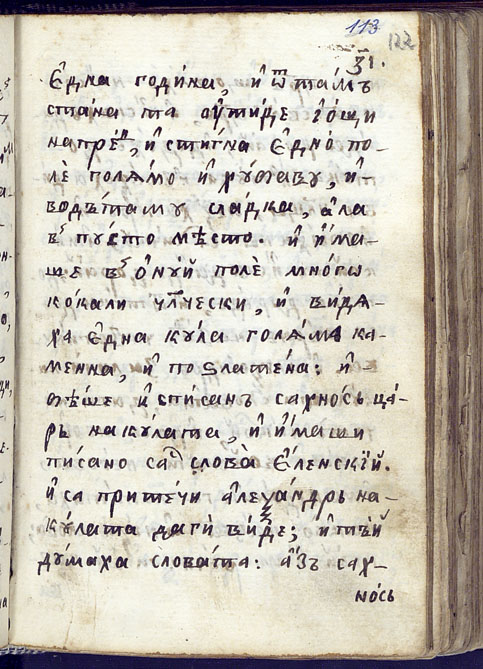 113
122
з҃і.
Е҆дна година, и҆ ѿтамъ
стана та ѹ҆тиде і҆ ѻ҆щи
напреⷣ, и҆ стигна є҆дно по-
лѐ полѧмо и҆ хꙋбавꙋ, и҆
водътамꙋ сладка, а҆ла
въ пꙋсто мѣсто. и҆ и҆ма-
ше въ ѻ҆нꙋй полѐ многѡ
кокали чл҃чески, и҆ видѧ-
ха є҆дна кꙋла голѧма ка-
менна, и҆ поѕлатена: и҆
бѣше и҆списанъ сахносъ ца-
рь накꙋлата, и҆ и҆маши
писано саⷭ҇ слова̀ є҆ленскїй.
и҆ са притечи а҆леѯандрь на-
кꙋлата даги виде; и҆ тѣй
дꙋмаха словата: а҆зъ сах-
нось